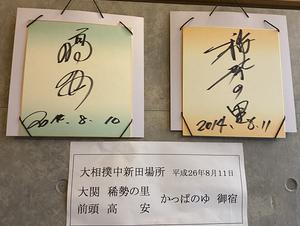 高安
2014.8.10
稀勢の里
2014.8.11
大相撲中新田場所 平成26年8月11日
大関 稀勢の里
前頭 高 安
かっぱのゆ 御宿